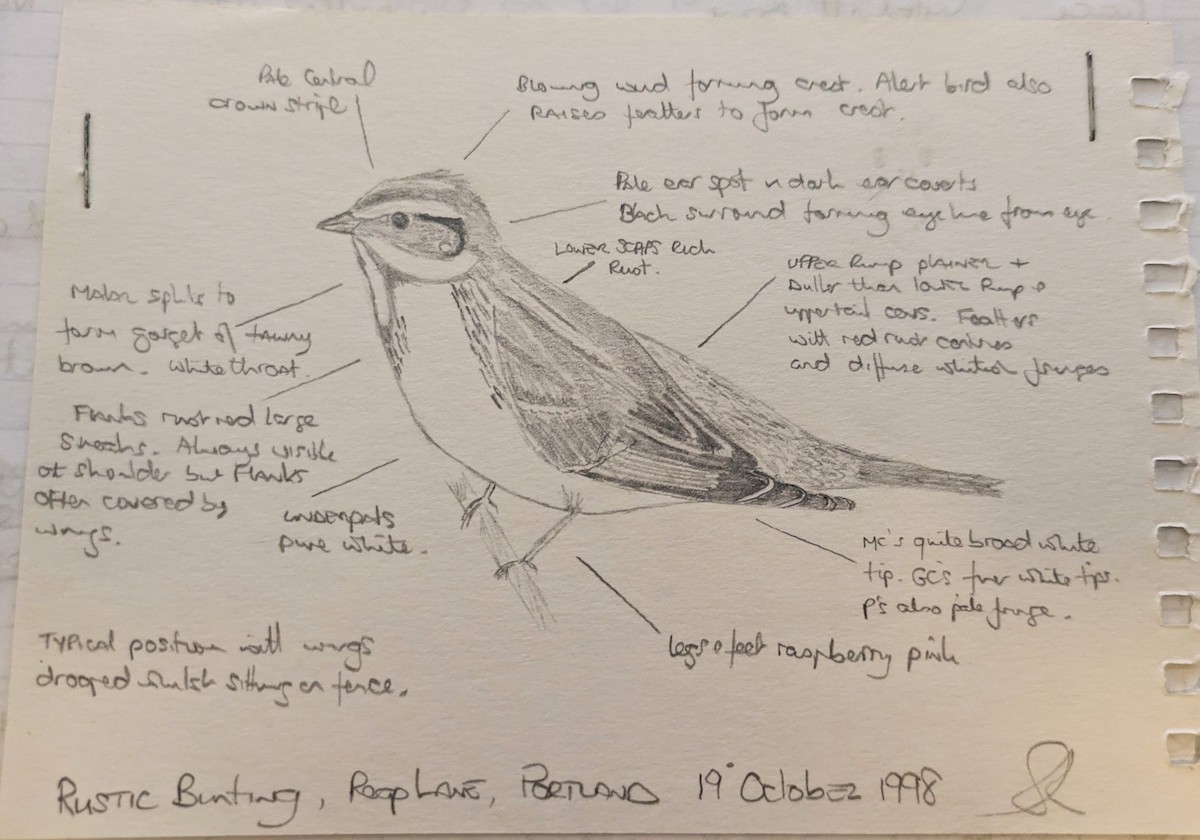 Pale Central
crown stripe
Blowing wind forming crest. Alert bird also
RAISES feathers to form crest.
Pale ear spot in dark ear coverts
Black surround forming eye line from eye
LOWER SCAPS Rich
Rust.
UPPER Rump PLAINER +
Duller than lower Rump &
uppertail covs. Feathers
with red rust centres
and diffuse whitish fringes
Malar splits to
form gorget of tawny
brown. White throat.
Flanks rust red large
Streaks. Always visible
at shoulder but Flanks
often covered by
wings.
UNDERPARTS
pure white.
MC's quite broad white
tip. GC's finer white tips.
P's also pale fringe.
legs & feet raspberry pink
TYPICAL position with wings
drooped whilst sitting on fence.
RUSTIC Bunting, LANE, PORTLAND 19° OCTOBER 1998